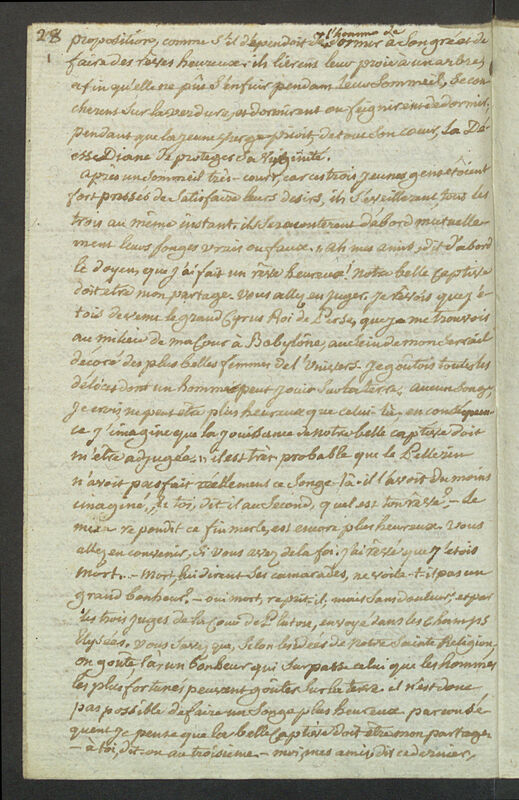 28
proposition, comme s'il dépendoit de l'homme de dormir à son gré et de
faire des rêves heureux: ils lierent leur proie à un arbre,
afin qu'elle ne pûe s'enfuir pendant leur sommeil, se cou-
cherent sur la verdure, et dormirent ou feignirent de dormir,
pendant que la jeune Vierge prioit, de tout son cœur, la Dé-
esse Diane de proteger sa Virginité.
Après un sommeil très-court, car ces trois jeunes gens étoient
fort pressés de satisfaire leurs desirs, ils s'éveillerent tous les
trois au même instant. ils se raconterent d'abord mutuelle-
ment leurs songes vrais ou faux. „ ah mes amis, dit d'abord
le doyen, que j'ai fait un rêve heureux! notre belle captive
doit etre mon partage. vous allez en juger. je rêvois que j'é-
tois devenu le grand Cyrus Roi de Perse, que je me trouvois
au milieu de ma Cour à Babylône, au sein de mon serrail
décoré des plus belles femmes de l'Univers. je goûtois toutes les
délices dont un homme peut jouir sur la terre. aucun songe,
je crois, ne peut etre plus heureux que celui-là. en conséquen-
ce j'imagine que la jouissance de notre belle captive doit
m'etre adjugée. „ il est très probable que le Pellerin
n'avoit pas fait réellement ce songe-là. il l'avoit du moins
imaginé. „ Et toi, dit il au Second, quel est ton rêve? – le
mien repondit ce fin merle, est encore plus heureux. vous
allez en convenir, si vous avez de la foi. j'ai rêvé que j'etois
mort. – mort, lui dirent ses camarades, ne voila-t-il pas un
grand bonheur? – oui mort, reprit-il, mais sans douleur, et par
les trois juges de la Cour de Pluton, envoyé dans les Champs
Elysées. vous savez que, selon les idées de notre Sainte Religion,
on goûte là un bonheur qui surpasse celui que les hommes
les plus fortunés peuvent goûter sur la terre. il n'est donc
pas possible de faire un songe plus heureux. par consé-
quent je pense que la belle captive doit etre mon partage.
– à toi, dit-on au troisieme. – moi, mes amis, dit ce dernier,